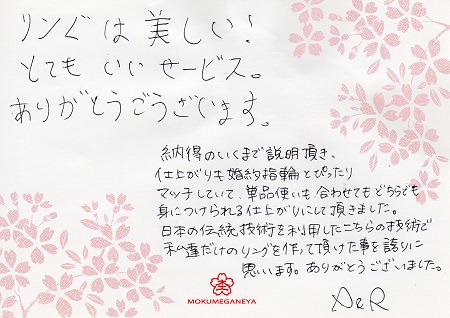 リングは美しい!
とてもいいサービス。
ありがとうございます。
納得のいくまで説明頂き、
仕上がりも婚約指輪とぴったり
マッチしていて、単品使いも合わせてもどちらでも
身につけられる仕上がりにして頂きました。
日本の伝統技術を利用したこちらの技術で
私達だけのリングを作って頂けた事を誇りに
思います。ありがとうございました。
A&R
MOKUMEGANEYA